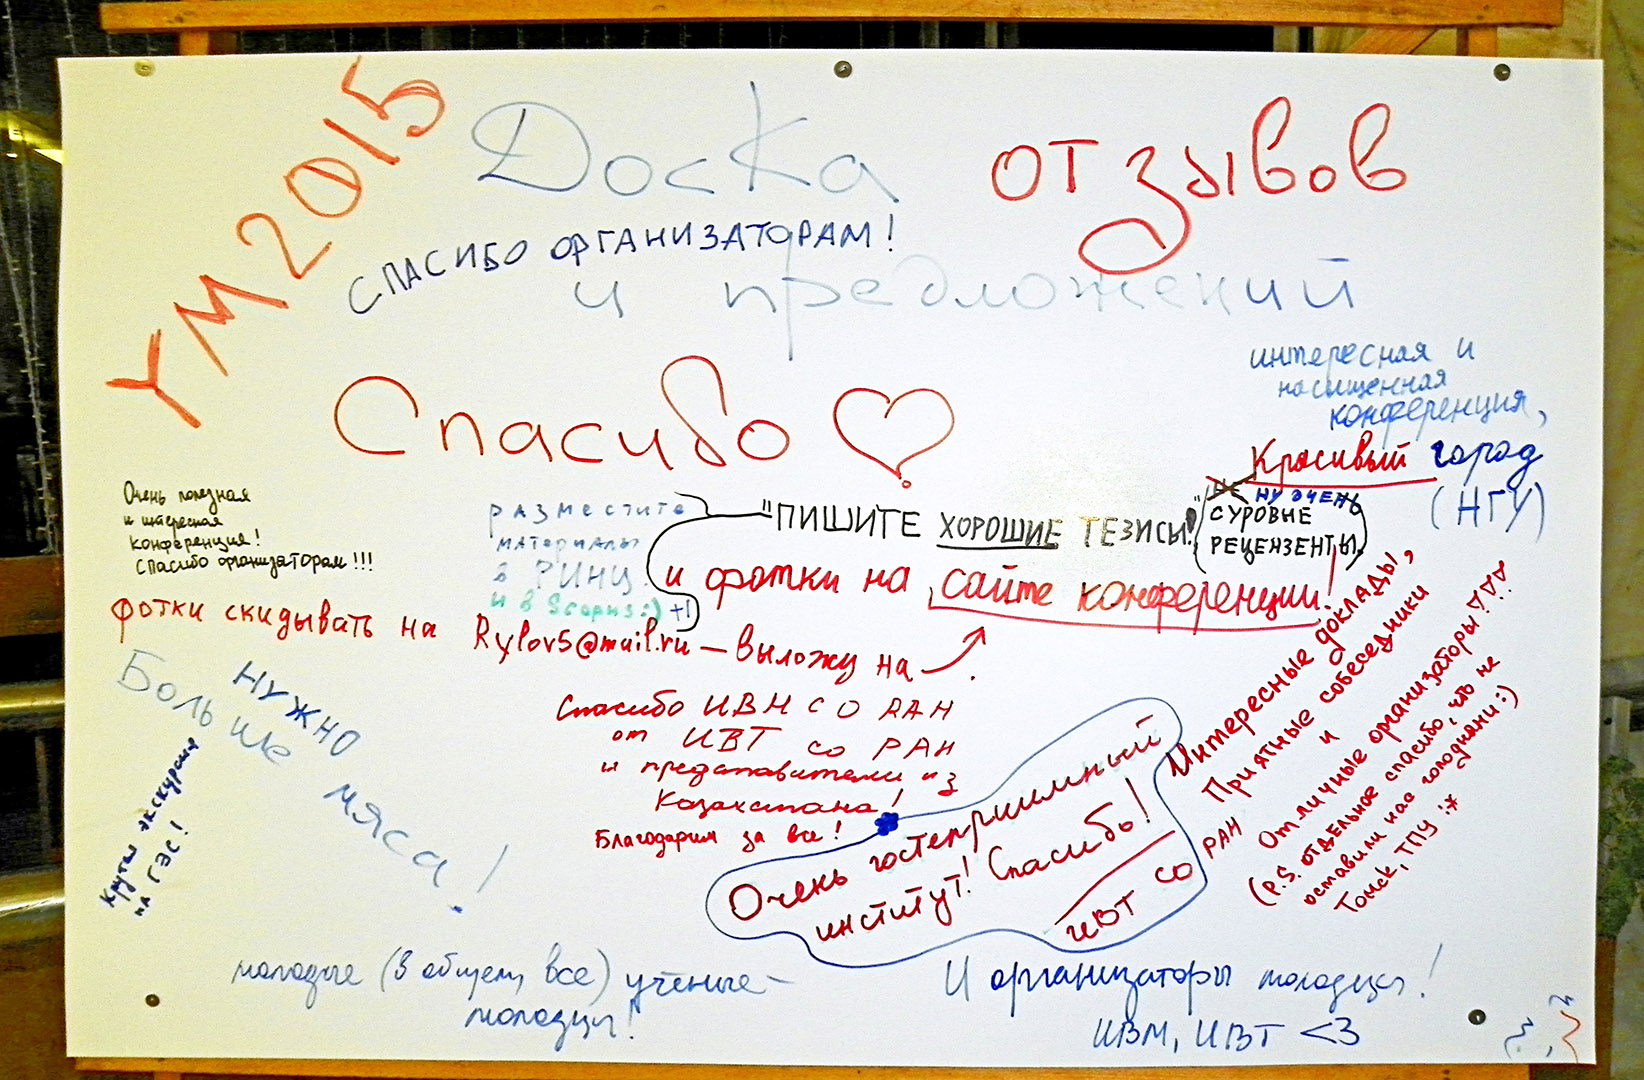 YM2015
Доска отзывов
и предложений
СПАСИБО ОРГАНИЗАТОРАМ!
Спасибо
интересная и
насыщенная
конференция,
Красивый город
(НГУ)
Очень полезная
и интересная
конференция!
Спасибо организаторам!!!
разместите
материалы
в РИНЦ
и в Scopus:) +1
"ПИШИТЕ ХОРОШИЕ ТЕЗИСЫ!"
НУ ОЧЕНЬ
СУРОВЫЕ
РЕЦЕНЗЕНТЫ)
и фотки на сайте конференции!
фотки скидывать на Rylov5@mail.ru — выложу на
НУЖНО
Больше мяса!
Круты экскурсия
на ГЭС!
Спасибо ИВМ СО РАН
от ИВТ СО РАН
и представители из
Казахстана!
Благодарим за все!
Очень гостеприимный
институт! Спасибо!
ИВТ СО РАН
Интересные доклады,
Приятные собеседники
и
Отличные организаторы!!!
(P.S. отдельное спасибо, что не
оставили нас голодными:)
Томск, ТПУ :*
молодые (в общем, все) учёные —
молодцы!
И организаторы молодцы!
ИВМ, ИВТ <3